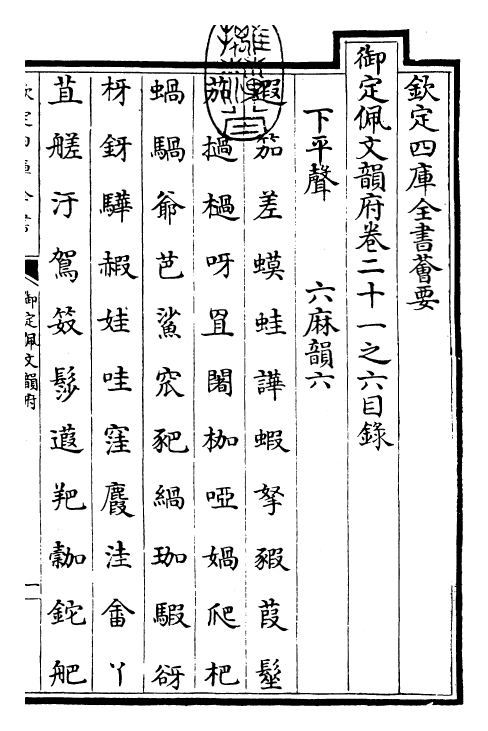 欽定四庫全書薈要
御定佩文韻府卷二十一之六目錄
下平聲 六麻韻六
遐笳差蟆蛙譁蝦拏豭葭髽
茄撾檛呀罝闍枷啞媧爬杷
蝸騧爺芭鯊窊豝緺珈騢谺
枒釾驊赮娃哇窪麚洼畬丫
苴艖汙鴐笯髿𨓺耙㔠鉈舥
御定佩文韻府
一